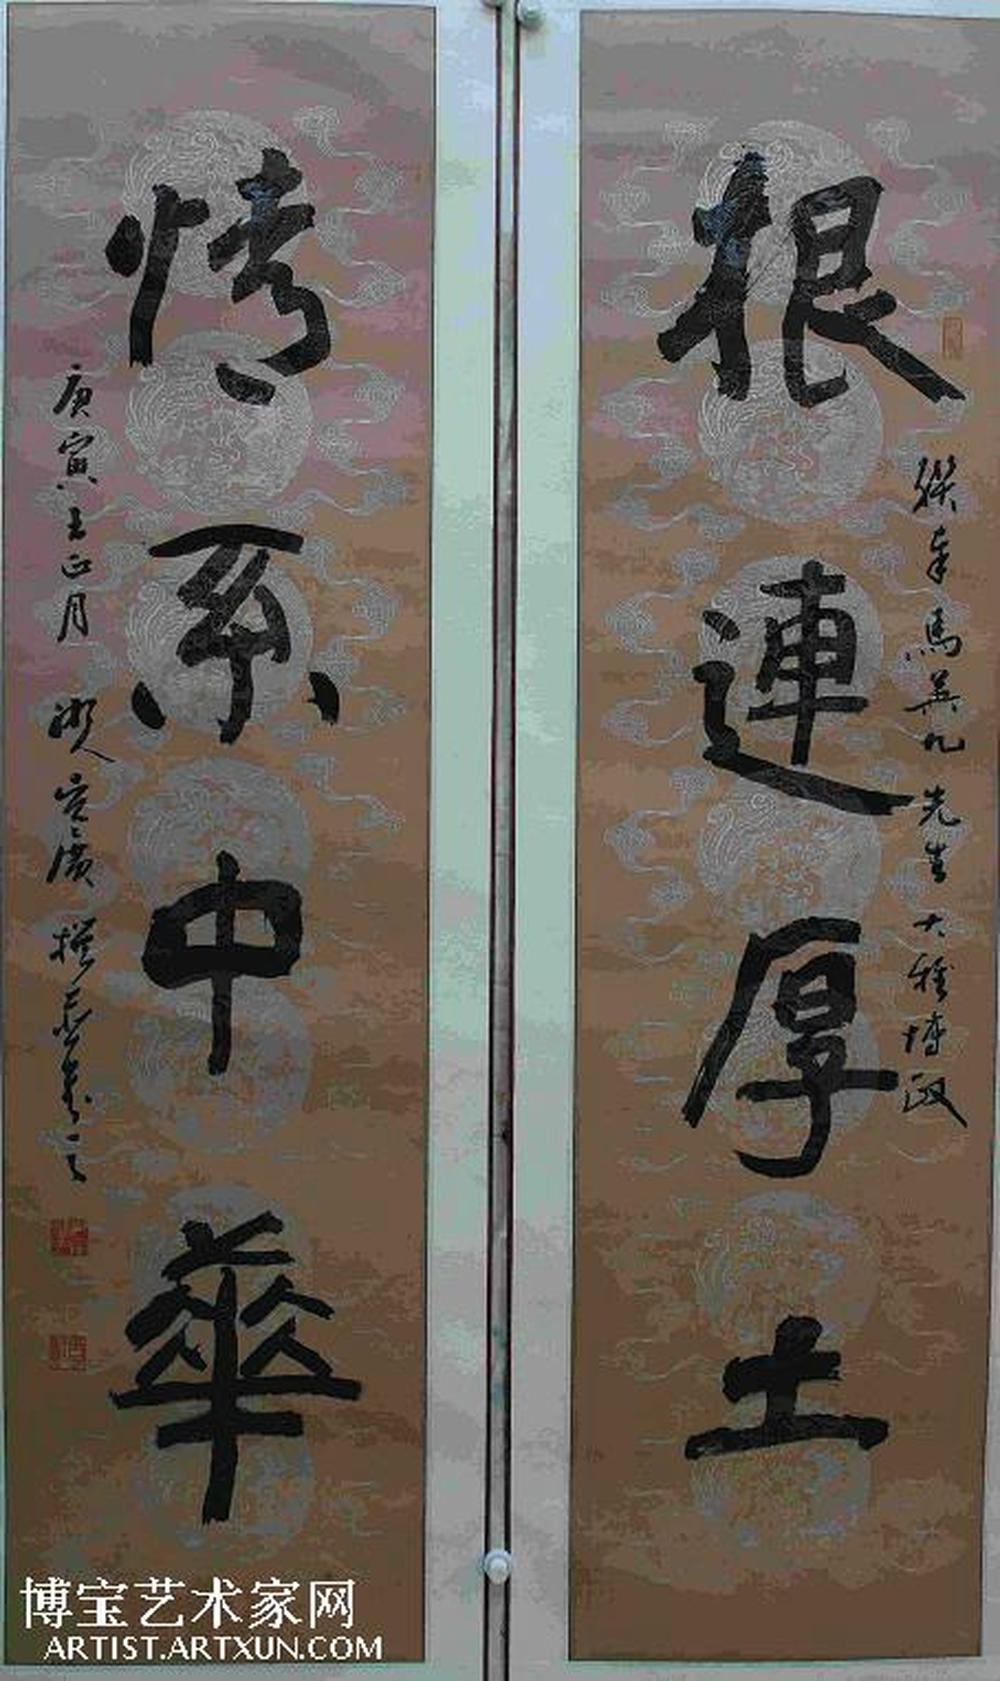 根連厚土
聯奉馬英九先生大雅博政
情系中華
庚寅正月
博宝艺术家网
ARTIST.ARTXUN.COM